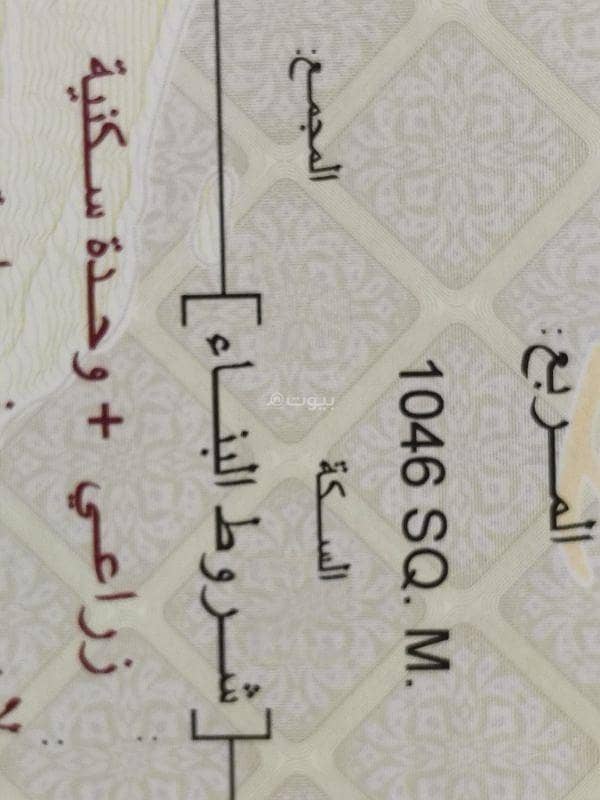 المربع:
1046 SQ. M.
المجمع:
السكة
بيوت
شروط البناء
زراعي + وحدة سكنية